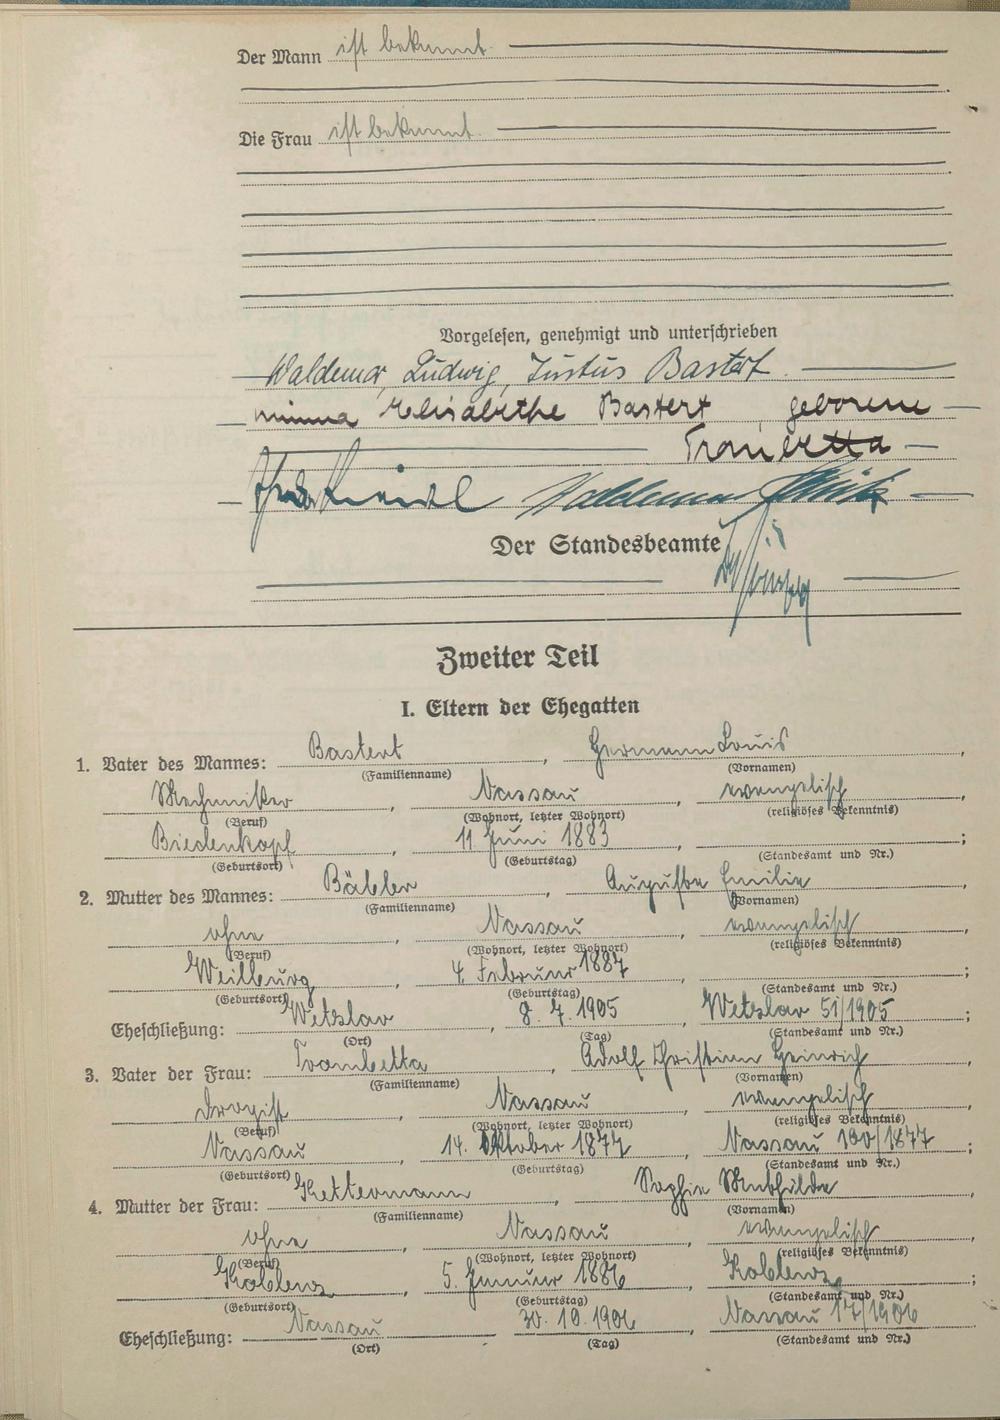 Der Mann ist bekannt.
Die Frau ist bekannt.
Vorgelesen, genehmigt und unterschrieben
Waldemar, Ludwig, Justus Bastert
Minna Elisabethe Bastert geborene
Trombetta
Waldemar
Der Standesbeamte
Zweiter Teil
I. Eltern der Ehegatten
1. Vater des Mannes: Bastert, Hermann Louis,
(Familienname) (Vornamen)
Mechaniker, Nassau, evangelisch,
(Beruf) (Wohnort, letzter Wohnort) (religiöses Bekenntnis)
Biedenkopf, 11. Juni 1883, ;
(Geburtsort) (Geburtstag) (Standesamt und Nr.)
2. Mutter des Mannes: Auguste Emilie,
(Familienname) (Vornamen)
ohne, Nassau, evangelisch,
(Beruf) (Wohnort, letzter Wohnort) (religiöses Bekenntnis)
Weilburg, 4. Februar 1887, ;
(Geburtsort) (Geburtstag) (Standesamt und Nr.)
Eheschließung: Wetzlar, 8. 7. 1905, Wetzlar 51/1905;
(Ort) (Tag) (Standesamt und Nr.)
3. Vater der Frau: Trombetta, Adolf Christian Heinrich,
(Familienname) (Vornamen)
Drogist, Nassau, evangelisch,
(Beruf) (Wohnort, letzter Wohnort) (religiöses Bekenntnis)
Nassau, 14. Oktober 1877, Nassau 190/1877;
(Geburtsort) (Geburtstag) (Standesamt und Nr.)
4. Mutter der Frau: Kettermann, Sophie Mathilde,
(Familienname) (Vornamen)
ohne, Nassau, evangelisch,
(Beruf) (Wohnort, letzter Wohnort) (religiöses Bekenntnis)
Koblenz, 5. Januar 1886, Koblenz;
(Geburtsort) (Geburtstag) (Standesamt und Nr.)
Eheschließung: Nassau, 30. 10. 1906, Nassau 17/1906
(Ort) (Tag) (Standesamt und Nr.)